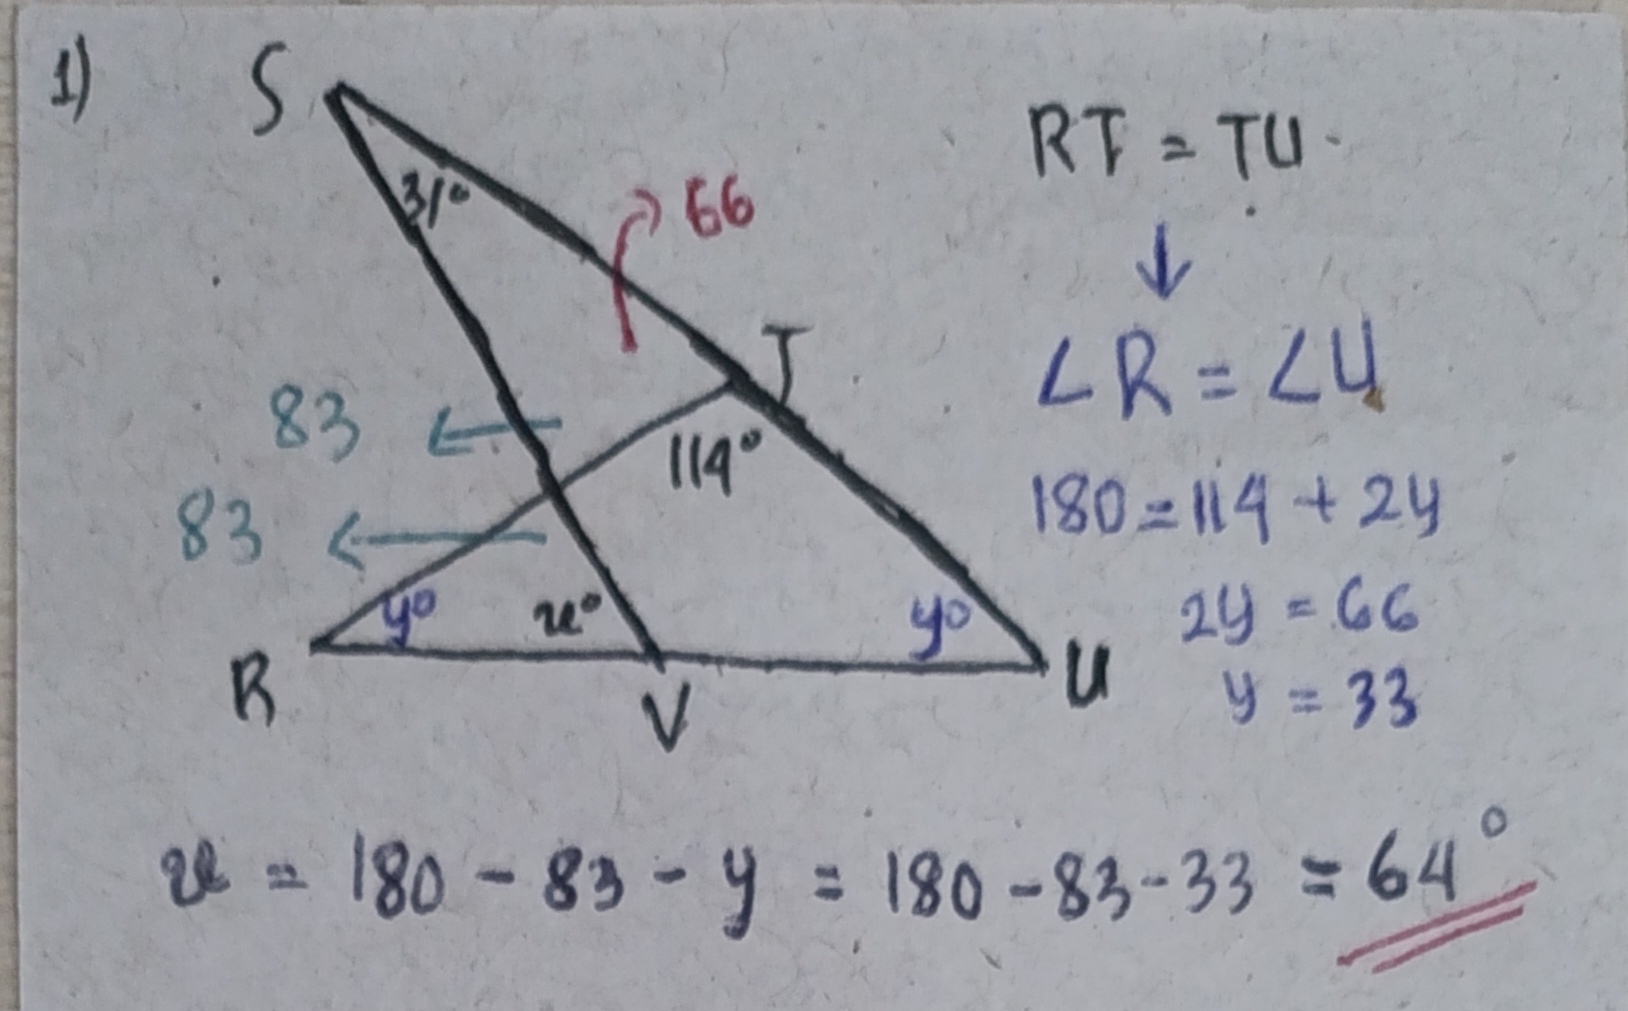 1)
S
RT = TU
31°
66
↓
T
∠R = ∠U
83
114°
180 = 114 + 2y
83
y° x° y°
2y = 66
R V U
y = 33
x = 180 - 83 - y = 180 - 83 - 33 = 64°